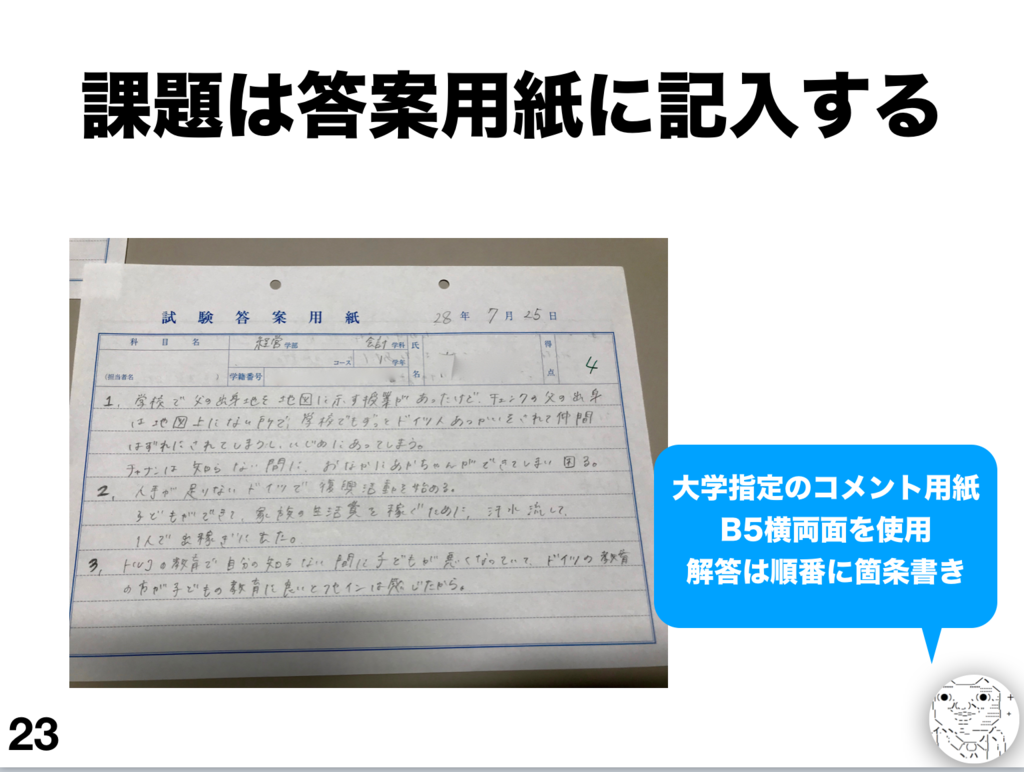 課題は答案用紙に記入する
試験答案用紙 28年 7月 25日
科目名 経営学部 会計学科 氏名 得点 4
コース 1学年
(担当者名 学籍番号
1. 学校で父の出身地を地図に示す授業があったけど、チェンクの父の出身
は地図上にない所で、学校でもずっとドイツ人あつかいをされて仲間
はずれにされてしまうし、いじめにあってしまう。
チャナンは知らない間に、おなかにあかちゃんができてしまい困る。
2. 人手が足りないドイツで復興活動を始める。
子どもができて、家族の生活費を稼ぐために、汗水流して、
1人で出稼ぎに来た。
3. トルコの教育で自分の知らない間に子どもが悪くなっていて、ドイツの教育
の方が子どもの教育に良いとフセインは感じたから。
大学指定のコメント用紙
B5横両面を使用
解答は順番に箇条書き
23